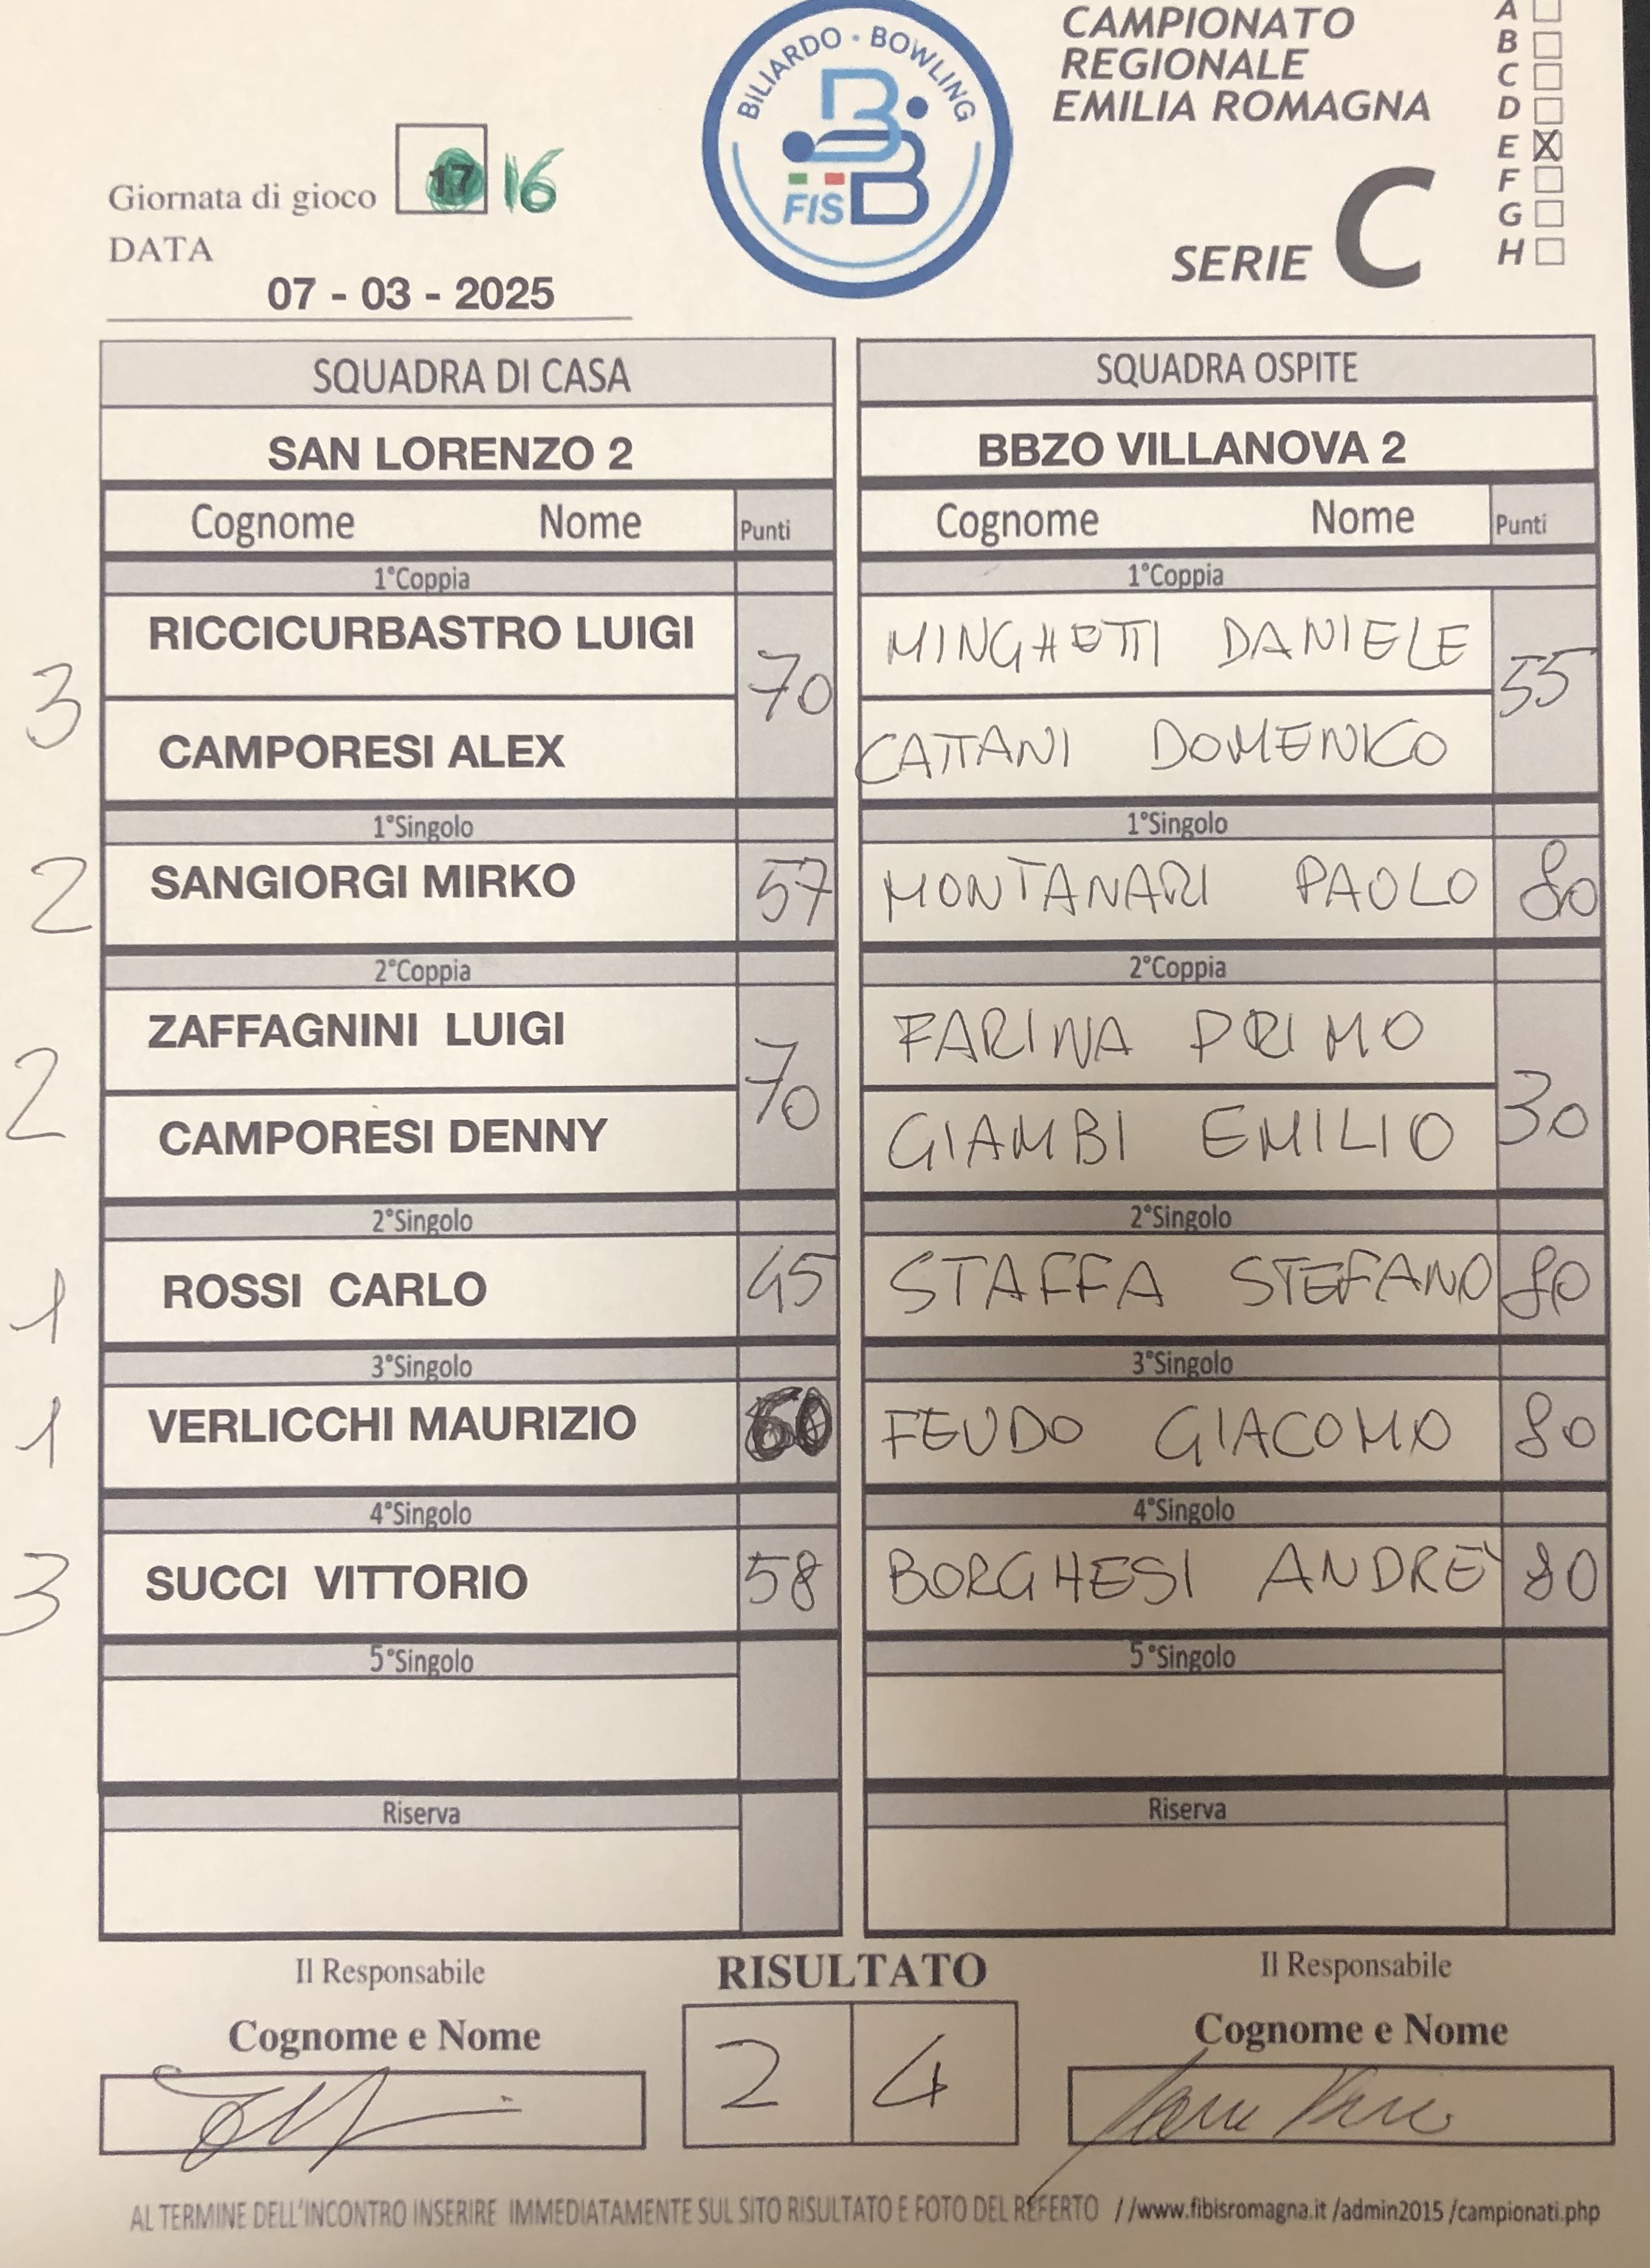 CAMPIONATO
REGIONALE
EMILIA ROMAGNA
SERIE C
A
B
C
D
E X
F
G
H
BILIARDO · BOWLING
FISBB
Giornata di gioco 17 16
DATA
07 - 03 - 2025
SQUADRA DI CASA
SAN LORENZO 2
Cognome Nome Punti
1°Coppia
RICCICURBASTRO LUIGI
3 70
CAMPORESI ALEX
1°Singolo
2 SANGIORGI MIRKO 57
2°Coppia
ZAFFAGNINI LUIGI
2 70
CAMPORESI DENNY
2°Singolo
1 ROSSI CARLO 45
3°Singolo
1 VERLICCHI MAURIZIO 60
4°Singolo
3 SUCCI VITTORIO 58
5°Singolo
Riserva
SQUADRA OSPITE
BBZO VILLANOVA 2
Cognome Nome Punti
1°Coppia
MINGHETTI DANIELE
55
CATTANI DOMENICO
1°Singolo
MONTANARI PAOLO 80
2°Coppia
FARINA PRIMO
30
GIAMBI EMILIO
2°Singolo
STAFFA STEFANO 80
3°Singolo
FEUDO GIACOMO 80
4°Singolo
BORGHESI ANDRE' 80
5°Singolo
Riserva
Il Responsabile
Cognome e Nome
RISULTATO
2 4
Il Responsabile
Cognome e Nome
AL TERMINE DELL'INCONTRO INSERIRE IMMEDIATAMENTE SUL SITO RISULTATO E FOTO DEL REFERTO //www.fibisromagna.it /admin2015 /campionati.php